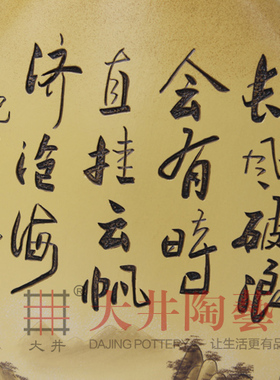 长风破浪
会有時
直挂云帆
济沧海
大井陶藝
®
大井
DAJING POTTERY
让生活更有品